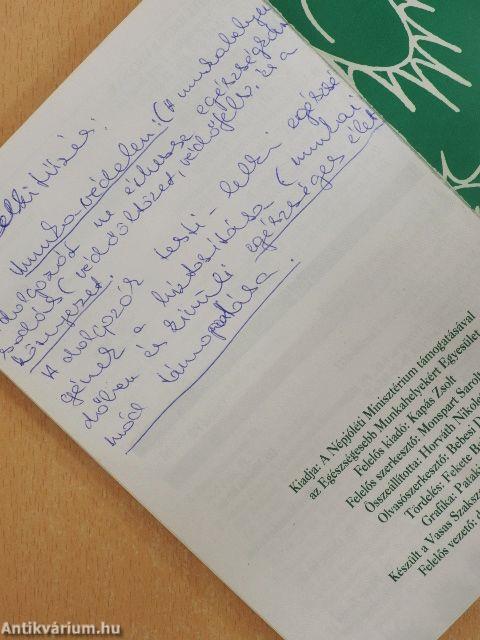 munkavédelem: (A munkahelyen
dolgozót ne érhesse egészségká
sodás (védőöltözet, védőfelsz. és a
környezet.
A dolgozók testi-lelki egészsé
gének a biztosítása (munkai
dőben és kívüli egészséges élet
mód támogatása.
Kiadja: A Népjóléti Minisztérium támogatásával
az Egészségesebb Munkahelyekért Egyesület
Felelős kiadó: Kapás Zsolt
Felelős szerkesztő: Monspart Sarolt
Összeállította: Horváth Nikole
Olvasószerkesztő: Bebesi D
Tördelés: Fekete B
Grafika: Pataki
Készült a Vasas Szaksz
Felelős vezető: d
Antikvárium.hu